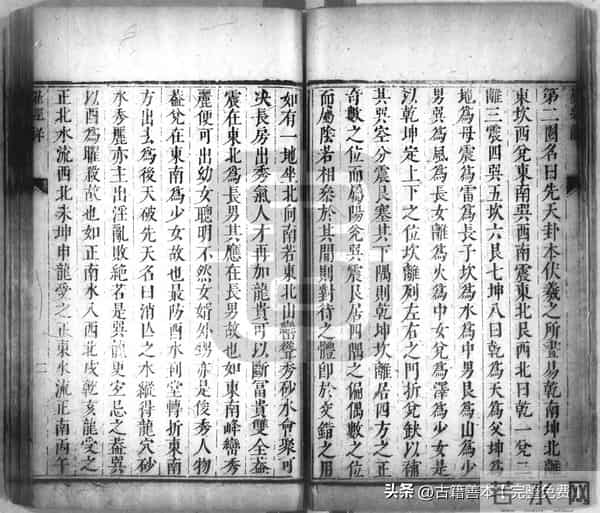 第二圈名曰先天卦本伏羲之所畫易乾南坤北離
東坎西兌東南巽西南震東北艮西北曰乾一兌二
離三震四巽五坎六艮七坤八曰乾為天為父坤為
地為母震為雷為長子坎為水為中男艮為山為少
男巽為風為長女離為火為中女兌為澤為少女是
以乾坤定上下之位坎離列左右之門折兌缺以補
其巽塞分震艮塞其下隅則乾坤坎離居四方之正
奇數之位而屬陽兌巽震艮居四隅之偏偶數之位
而屬陰若相參於其間則對待之體即於交錯之用
如有一地坐北向南若東北山巒聳秀砂水會聚可
决長房出秀氣人才再如龍貴可以斷富貴雙全蓋
震在東北為長男其應在長男故也如東南峰巒秀
麗便可出幼女聰明不然女婿外甥亦是俊秀人物
蓋兌在東南為少女故也最防酉水到堂轉折東南
方出去為後天破先天名曰消亡之水縱得龍穴砂
水秀麗亦主出淫亂敗絶名是巽龍更宜忌之蓋巽
以酉為曜殺故也如正南水入西北戌乾亥龍受之
正北水流西北未坤申龍受之正東水流正南丙午
头条 @古籍善本 完整免费